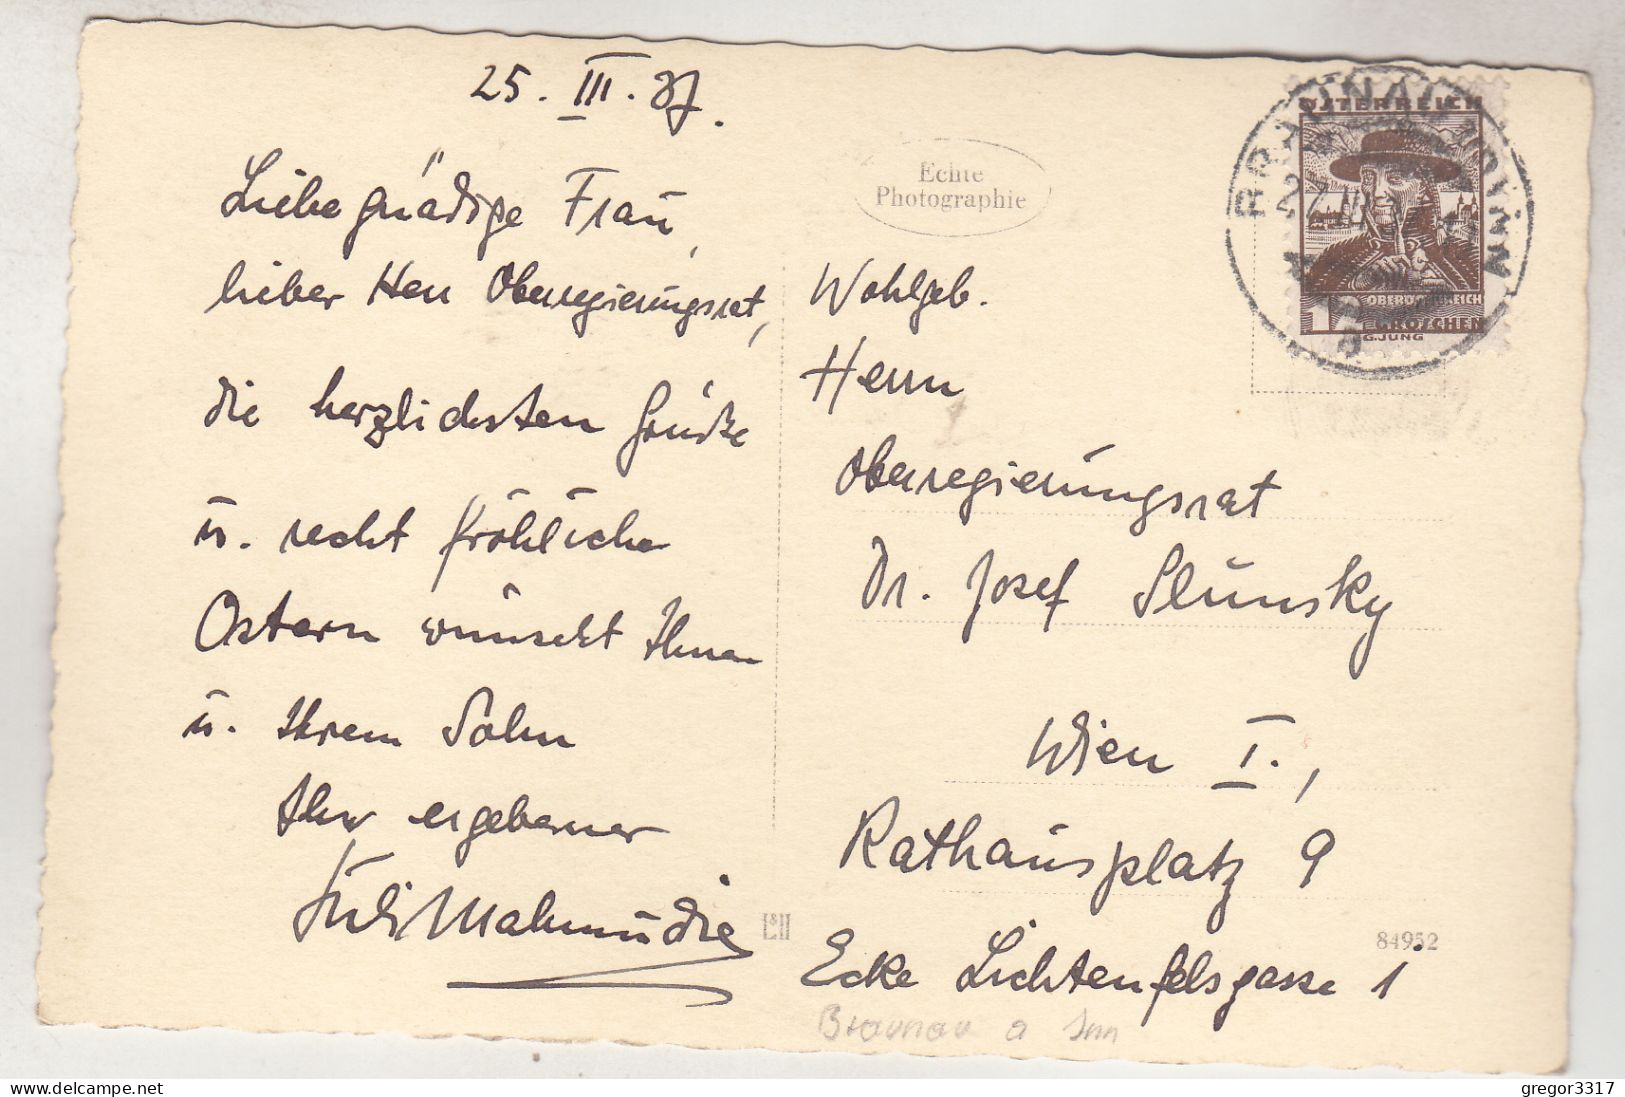 25. III. 37.
Liebe gnädige Frau,
lieber Herr Oberregierungsrat,
die herzlichsten Grüße
u. recht fröhliche
Ostern wünscht Ihnen
u. Ihrem Sohn
Ihr ergebener
Mahmudie
Echte
Photographie
Wohlgeb.
Herrn
Oberregierungsrat
Dr. Josef Slunsky
Wien I.,
Rathausplatz 9
Ecke Lichtenfelsgasse 1
L&H
84952
Braunau a Inn
BRAUNAU AM INN
ÖSTERREICH
OBERÖSTERREICH
12 GROSCHEN
G.JUNG
gregor3317